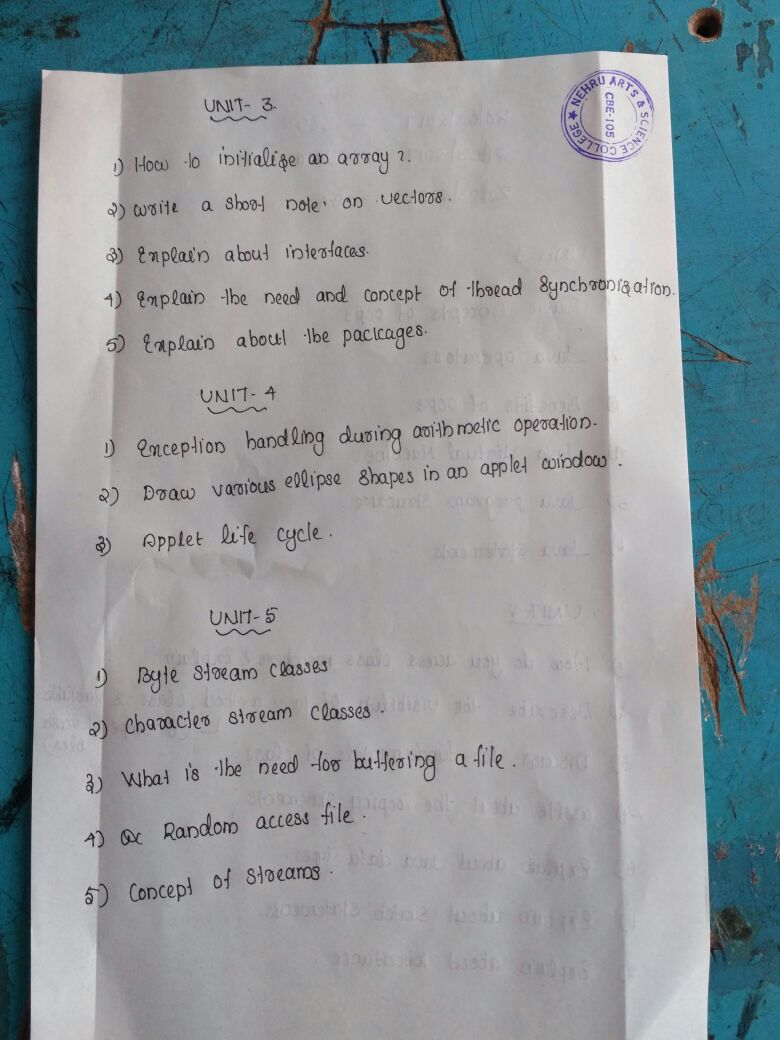 NEHRU ARTS & SCIENCE COLLEGE ★
CBE-105
UNIT- 3.
1) How to initialize an array?.
2) Write a short note on vectors.
3) Explain about interfaces.
4) Explain the need and concept of thread Synchronization.
5) Explain about the packages.
UNIT- 4
1) Exception handling during arithmetic operation.
2) Draw various ellipse shapes in an applet window.
3) Applet life cycle.
UNIT- 5
1) Byte stream classes
2) Character stream classes.
3) What is the need for buffering a file.
4) Random access file.
5) Concept of Streams.